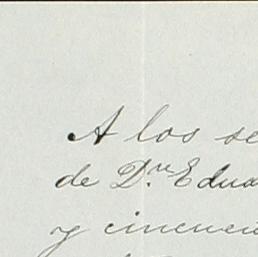 A los se
de D.ⁿ Edua
y cincuen